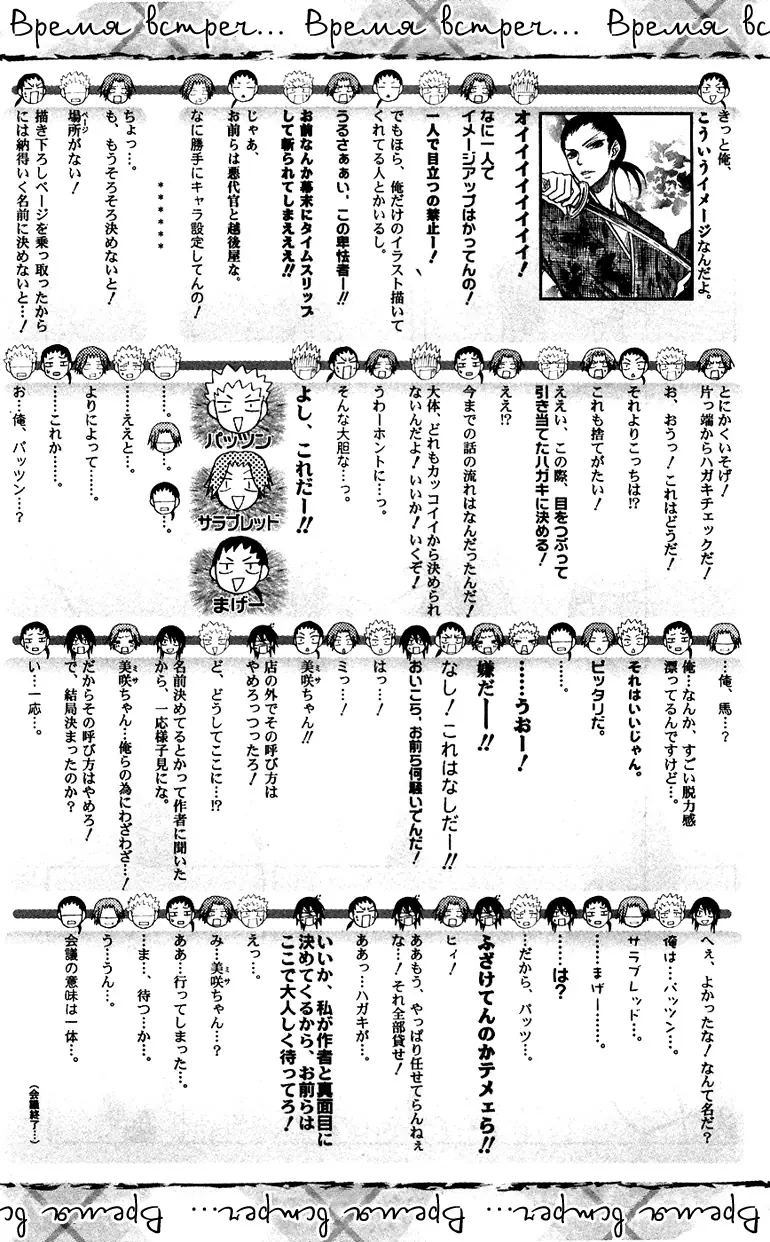 Время встреч... Время встреч... Время вс
きっと俺、
こういうイメージなんだよ。
オイイイイイイイイ！
なに一人で
イメージアップはかってんの！
一人で目立つの禁止ー！
でもほら、俺だけのイラスト描いて
くれてる人とかいるし。
うるさぁぁい、この卑怯者ー!!
お前なんか幕末にタイムスリップ
して斬られてしまえええ!!
じゃあ、
お前らは悪代官と越後屋な。
なに勝手にキャラ設定してんの！
＊＊＊＊＊＊
ちょっ…。
も、もうそろそろ決めないと！
場所がない！
ページ
描き下ろしページを乗っ取ったから
には納得いく名前に決めないと…！
とにかくいそげ！
片っ端からハガキチェックだ！
お、おうっ！これはどうだ！
それよりこっちは!?
これも捨てがたい！
ええい、この際、目をつぶって
引き当てたハガキに決める！
ええ!?
今までの話の流れはなんだったんだ！
大体、どれもカッコイイから決められ
ないんだよ！いいか！いくぞ！
うわーホントに…っ。
そんな大胆な…っ。
よし、これだー!!
バッツン
サラブレッド
まげー
……。
…。
…。
……ええと…。
よりによって……。
……これか……。
お…俺、バッツン…？
…俺、馬…？
俺…なんか、すごい脱力感
漂ってるんですけど…。
それはいいじゃん。
ピッタリだ。
……。
……うおー！
嫌だーー!!
なし！これはなしだー!!
おいこら、お前ら何騒いてんだ！
はっ…！
ミっ…！
美咲ちゃん!!
ミサ
店の外でその呼び方は
やめろっつったろ！
ど、どうしてここに…!?
名前決めてるとかって作者に聞いた
から、一応様子見にな。
美咲ちゃん…俺らの為にわざわざ…！
ミサ
だからその呼び方はやめろ！
で、結局決まったのか？
い…一応…。
へぇ、よかったな！なんて名だ？
俺は…バッツン…。
サラブレッド…。
……まげー……。
……は？
…だから、バッツ…。
ふざけてんのかテメェら!!
ヒィ！
ああもう、やっぱり任せてらんねぇ
な…！それ全部貸せ！
ああっ…ハガキが…。
いいか、私が作者と真面目に
決めてくるから、お前らは
ここで大人しく待ってろ！
えっ…。
み…美咲ちゃん…？
ミサ
ああ…行ってしまった…。
…ま…、待つ…か…。
う…うん…。
会議の意味は一体…。
（会議終了…）
Время встреч... Время встреч... Время вс